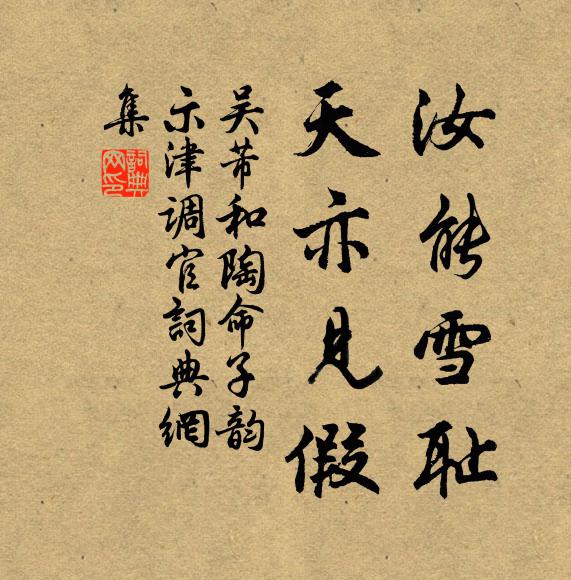 汝能雪耻
天亦見假
吴芾和陶命子韵
示津調官詞典網
集
詞典網印